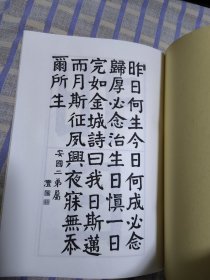 昨日何生今日何成必念
歸厚必念治生日慎一日
完如金城詩曰我日斯邁
而月斯征夙興夜寐無忝
爾所生
安國二弟屬